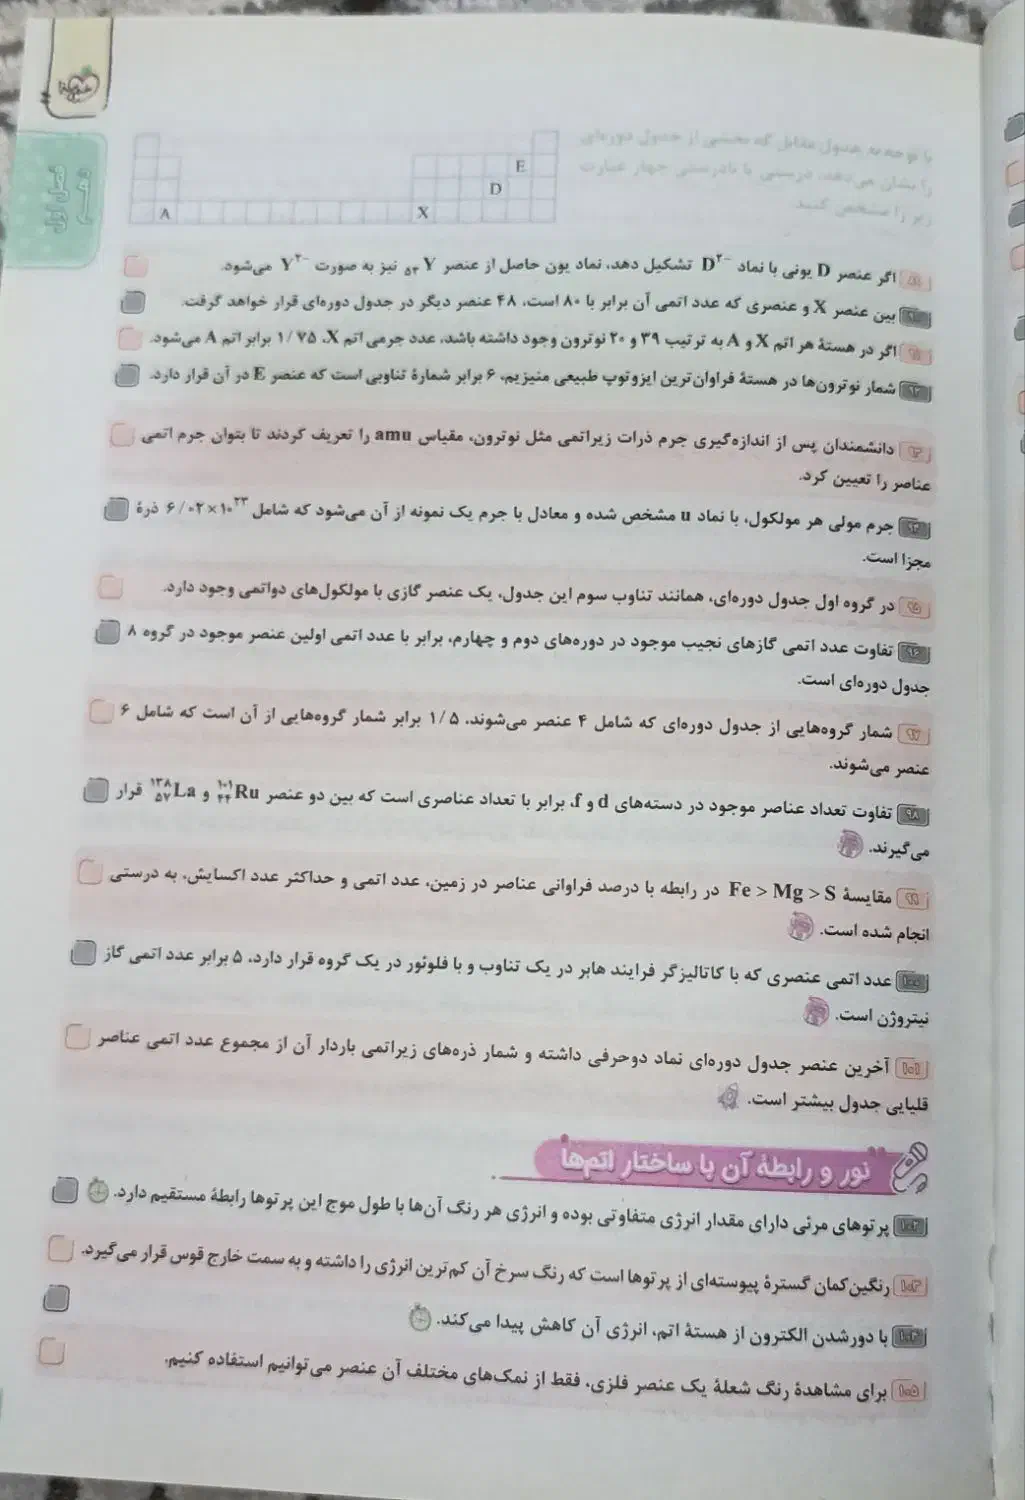 فصل اول
دهم
با توجه به جدول مقابل که بخشی از جدول دوره‌ای
را نشان می‌دهد، درستی یا نادرستی چهار عبارت
زیر را مشخص کنید.
E
D
A X
۸۹ اگر عنصر D یونی با نماد D²⁻ تشکیل دهد، نماد یون حاصل از عنصر ₅₃Y نیز به صورت Y²⁻ می‌شود.
۹۰ بین عنصر X و عنصری که عدد اتمی آن برابر با ۸۰ است، ۴۸ عنصر دیگر در جدول دوره‌ای قرار خواهد گرفت.
۹۱ اگر در هستهٔ هر اتم X و A به ترتیب ۳۹ و ۲۰ نوترون وجود داشته باشد، عدد جرمی اتم X، ۱/۷۵ برابر اتم A می‌شود.
۹۲ شمار نوترون‌ها در هستهٔ فراوان‌ترین ایزوتوپ طبیعی منیزیم، ۶ برابر شمارهٔ تناوبی است که عنصر E در آن قرار دارد.
۹۳ دانشمندان پس از اندازه‌گیری جرم ذرات زیراتمی مثل نوترون، مقیاس amu را تعریف کردند تا بتوان جرم اتمی
عناصر را تعیین کرد.
۹۴ جرم مولی هر مولکول، با نماد u مشخص شده و معادل با جرم یک نمونه از آن می‌شود که شامل ۶/۰۲×۱۰²³ ذرهٔ
مجزا است.
۹۵ در گروه اول جدول دوره‌ای، همانند تناوب سوم این جدول، یک عنصر گازی با مولکول‌های دواتمی وجود دارد.
۹۶ تفاوت عدد اتمی گازهای نجیب موجود در دوره‌های دوم و چهارم، برابر با عدد اتمی اولین عنصر موجود در گروه ۸
جدول دوره‌ای است.
۹۷ شمار گروه‌هایی از جدول دوره‌ای که شامل ۴ عنصر می‌شوند، ۱/۵ برابر شمار گروه‌هایی از آن است که شامل ۶
عنصر می‌شوند.
۹۸ تفاوت تعداد عناصر موجود در دسته‌های d و f، برابر با تعداد عناصری است که بین دو عنصر ¹⁰¹₄₄Ru و ¹³⁸₅₇La قرار
می‌گیرند.
۹۹ مقایسهٔ Fe > Mg > S در رابطه با درصد فراوانی عناصر در زمین، عدد اتمی و حداکثر عدد اکسایش، به درستی
انجام شده است.
۱۰۰ عدد اتمی عنصری که با کاتالیزگر فرایند هابر در یک تناوب و با فلوئور در یک گروه قرار دارد، ۵ برابر عدد اتمی گاز
نیتروژن است.
۱۰۱ آخرین عنصر جدول دوره‌ای نماد دوحرفی داشته و شمار ذره‌های زیراتمی باردار آن از مجموع عدد اتمی عناصر
قلیایی جدول بیشتر است.
نور و رابطهٔ آن با ساختار اتم‌ها
۱۰۲ پرتوهای مرئی دارای مقدار انرژی متفاوتی بوده و انرژی هر رنگ آن‌ها با طول موج این پرتوها رابطهٔ مستقیم دارد.
۱۰۳ رنگین‌کمان گسترهٔ پیوسته‌ای از پرتوها است که رنگ سرخ آن کم‌ترین انرژی را داشته و به سمت خارج قوس قرار می‌گیرد.
۱۰۴ با دورشدن الکترون از هستهٔ اتم، انرژی آن کاهش پیدا می‌کند.
۱۰۵ برای مشاهدهٔ رنگ شعلهٔ یک عنصر فلزی، فقط از نمک‌های مختلف آن عنصر می‌توانیم استفاده کنیم.